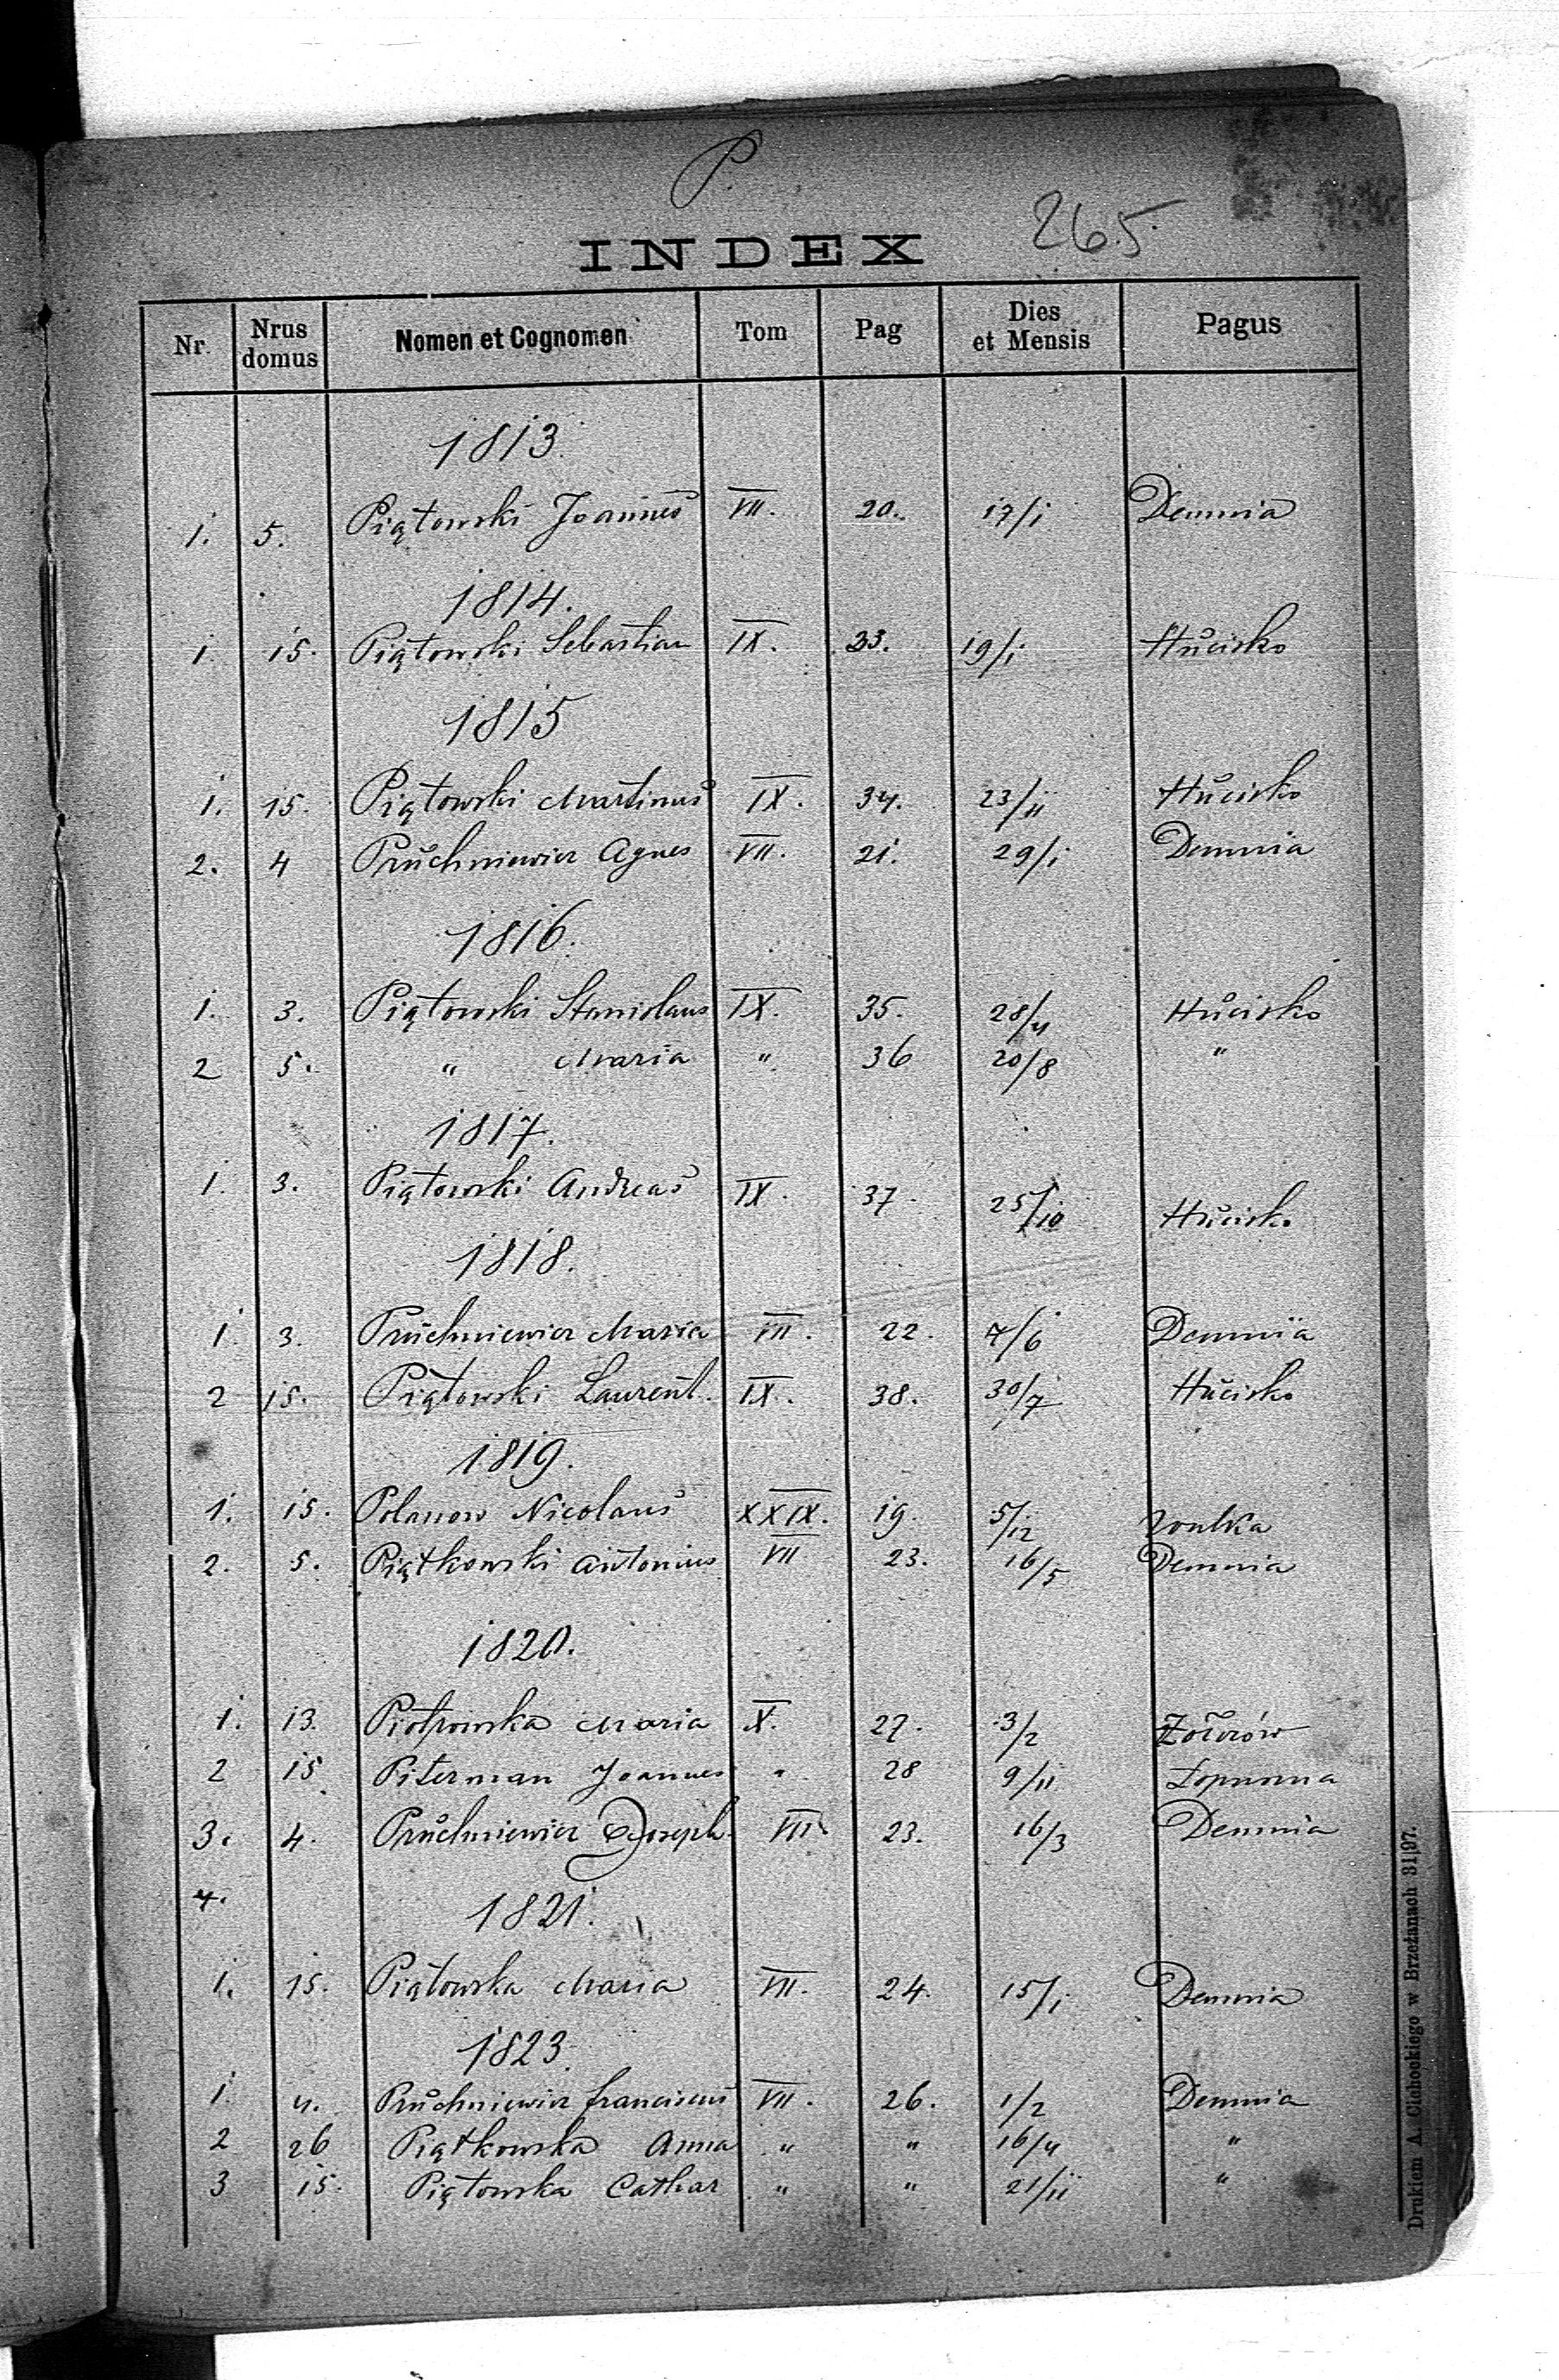 P.
265.
INDEX
Nr. Nrus domus Nomen et Cognomen Tom Pag Dies et Mensis Pagus
1813.
1. 5. Piątowski Joannes VII. 20. 17/1 Demnia
1814.
1 15. Piątowski Sebastian IX. 33. 19/1 Hŭcisko
1815
1. 15. Piątowski Martinus IX. 34. 23/11 Hŭcisko
2. 4 Prŭchniewicz Agnes VII. 21. 29/1 Demnia
1816.
1. 3. Piątowski Stanislaus IX. 35. 28/4 Hŭcisko
2 5. " Maria " 36 20/8 "
1817.
1. 3. Piątowski Andreas IX. 37. 25/10 Hŭcisko
1818.
1. 3. Prŭchniewicz Maria VII. 22. 7/6 Demnia
2 15. Piątowski Laurent. IX. 38. 30/7 Hŭcisko
1819.
1. 15. Polanow Nicolaus XXIX. 19. 5/12 Woulka
2. 5. Piątkowski Antonius VII 23. 16/5 Demnia
1820.
1. 13. Piotrowska Maria X. 27. 3/2
2 15 Piterman Joannes " 28 9/11 Łopuszna
3. 4. Prŭchniewicz Joseph VII 23. 16/3 Demnia
4.
1821.
1. 15. Piątowska Maria VII. 24. 15/1 Demnia
1823.
1. 4. Prŭchniewicz Franciscus VII. 26. 1/2 Demnia
2 26 Piątkowska Anna " " 16/4 "
3 15. Piątowska Cathar " " 21/11 "
Drukiem A. Cichockiego w Brzeżanach 31|97.